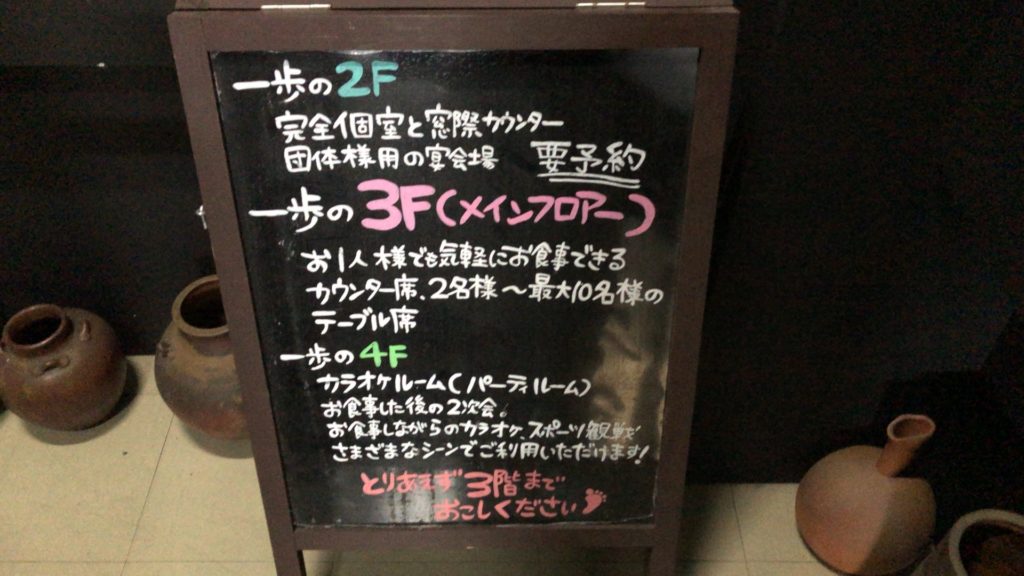 一歩の2F
完全個室と窓際カウンター
団体様用の宴会場 要予約
一歩の3F(メインフロアー)
お1人様でも気軽にお食事できる
カウンター席、2名様〜最大10名様の
テーブル席
一歩の4F
カラオケルーム(パーティルーム)
お食事した後の2次会。
お食事しながらのカラオケ、スポーツ観戦など
さまざまなシーンでご利用いただけます!
とりあえず3階まで
おこしください